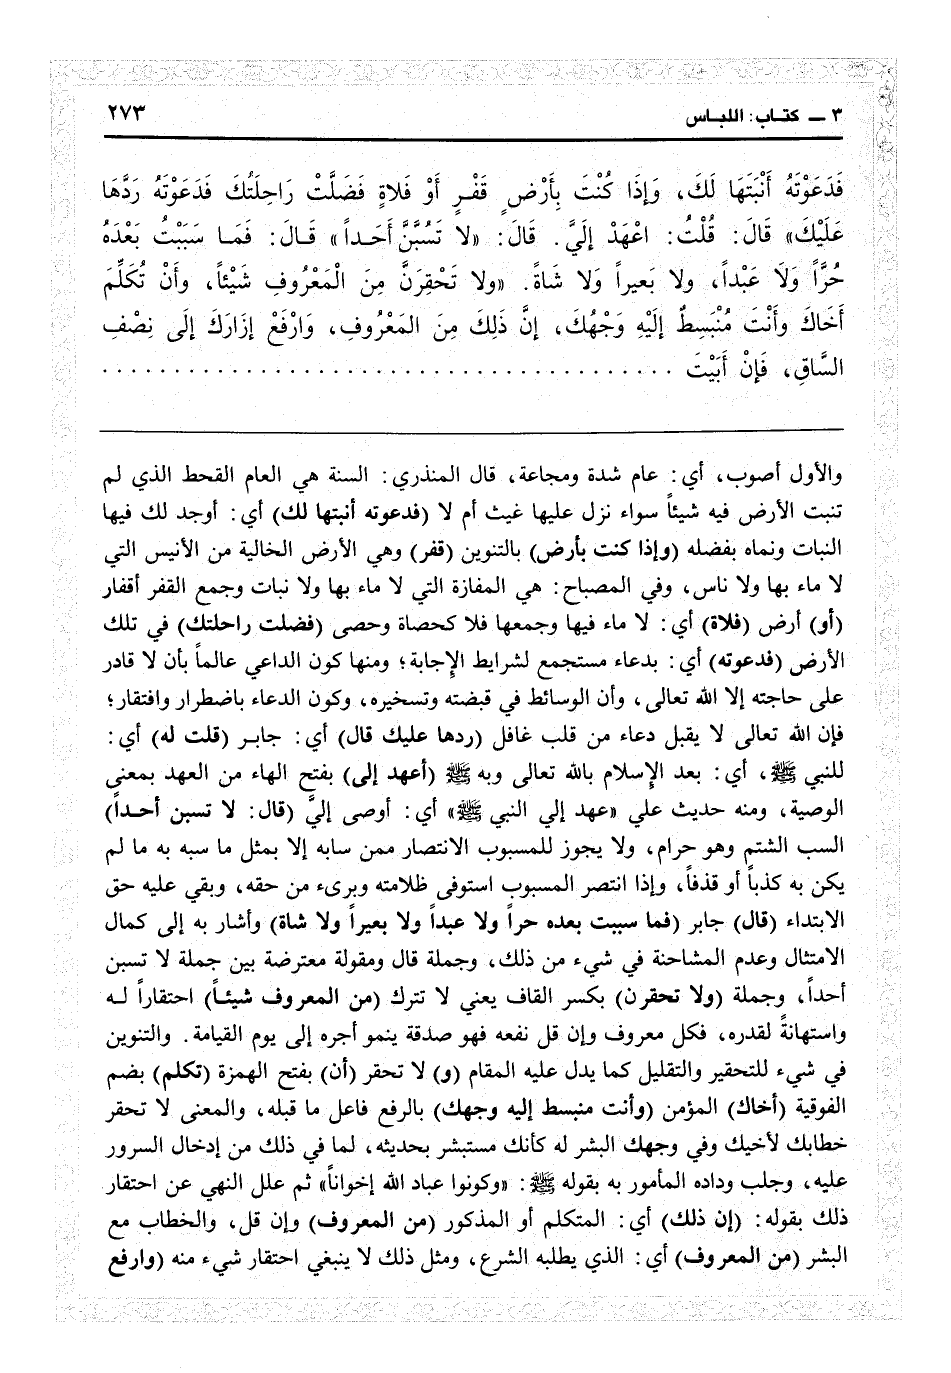 ٣ ــ كتـاب: اللبـاس
٢٧٣
فَدَعَوْتَهُ أَنْبَتَهَا لَكَ، وَإِذَا كُنْتَ بِأَرْضٍ قَفْرٍ أَوْ فَلاةٍ فَضَلَّتْ رَاحِلَتُكَ فَدَعَوْتَهُ رَدَّهَا
عَلَيْكَ» قَالَ: قُلْتُ: اعْهَدْ إلَيَّ. قَالَ: «لا تَسُبَّنَّ أَحَـداً» قَـالَ: فَمَـا سَبَبْتُ بَعْدَهُ
حُرّاً وَلَا عَبْداً، ولا بَعيراً وَلا شَاةً. «ولا تَحْقِرَنَّ مِنَ الْمَعْرُوفِ شَيْئاً، وأَنْ تُكَلِّمَ
أَخَاكَ وأَنْتَ مُنْبَسِطٌ إلَيْهِ وَجْهُكَ، إنَّ ذَلِكَ مِنَ المَعْرُوفِ، وَارْفَعْ إزَارَكَ إلَى نِصْفِ
السَّاقِ، فَإِنْ أَبَيْتَ . . . . . . . . . . . . . . . . . . . . . . . . . . . . . . . . . . . . . . .
والأول أصوب، أي: عام شدة ومجاعة، قال المنذري: السنة هي العام القحط الذي لم
تنبت الأرض فيه شيئاً سواء نزل عليها غيث أم لا (فدعوته أنبتها لك) أي: أوجد لك فيها
النبات ونماه بفضله (وإذا كنت بأرض) بالتنوين (قفر) وهي الأرض الخالية من الأنيس التي
لا ماء بها ولا ناس، وفي المصباح: هي المفازة التي لا ماء بها ولا نبات وجمع القفر أقفار
(أو) أرض (فلاة) أي: لا ماء فيها وجمعها فلا كحصاة وحصى (فضلت راحلتك) في تلك
الأرض (فدعوته) أي: بدعاء مستجمع لشرايط الإجابة؛ ومنها كون الداعي عالماً بأن لا قادر
على حاجته إلا الله تعالى، وأن الوسائط في قبضته وتسخيره، وكون الدعاء باضطرار وافتقار؛
فإن الله تعالى لا يقبل دعاء من قلب غافل (ردها عليك قال) أي: جابـر (قلت له) أي:
للنبي ﷺ، أي: بعد الإسلام بالله تعالى وبه ﷺ (أعهد إلى) بفتح الهاء من العهد بمعنى
الوصية، ومنه حديث علي «عهد إلي النبي ﷺ» أي: أوصى إليَّ (قال: لا تسبن أحـداً)
السب الشتم وهو حرام، ولا يجوز للمسبوب الانتصار ممن سابه إلا بمثل ما سبه به ما لم
يكن به كذباً أو قذفاً، وإذا انتصر المسبوب استوفى ظلامته وبرىء من حقه، وبقي عليه حق
الابتداء (قال) جابر (فما سببت بعده حراً ولا عبداً ولا بعيراً ولا شاة) وأشار به إلى كمال
الامتثال وعدم المشاحنة في شيء من ذلك، وجملة قال ومقولة معترضة بين جملة لا تسبن
أحداً، وجملة (ولا تحقرن) بكسر القاف يعني لا تترك (من المعروف شيئـاً) احتقاراً لـه
واستهانةً لقدره، فكل معروف وإن قل نفعه فهو صدقة ينمو أجره إلى يوم القيامة. والتنوين
في شيء للتحقير والتقليل كما يدل عليه المقام (و) لا تحقر (أن) بفتح الهمزة (تكلم) بضم
الفوقية (أخاك) المؤمن (وأنت منبسط إليه وجهك) بالرفع فاعل ما قبله، والمعنى لا تحقر
خطابك لأخيك وفي وجهك البشر له كأنك مستبشر بحديثه، لما في ذلك من إدخال السرور
عليه، وجلب وداده المأمور به بقوله ﷺ: «وكونوا عباد الله إخواناً» ثم علل النهي عن احتقار
ذلك بقوله: (إن ذلك) أي: المتكلم أو المذكور (من المعروف) وإن قل، والخطاب مع
البشر (من المعروف) أي: الذي يطلبه الشرع، ومثل ذلك لا ينبغي احتقار شيء منه (وارفع